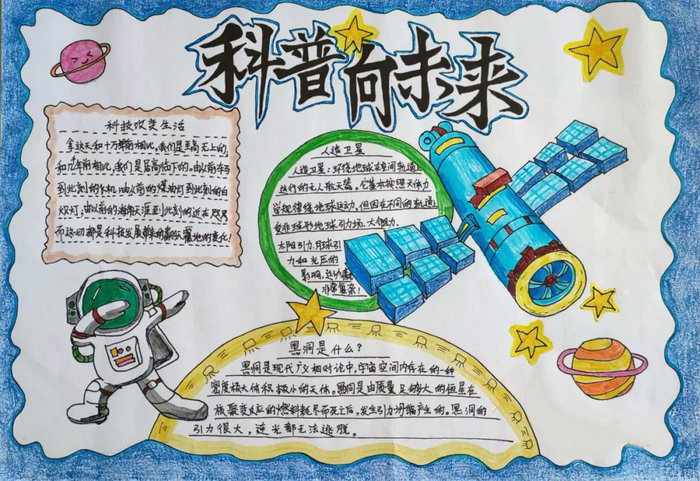 科普向未来
科技改变生活
拿这天和十万年前相比,我们是至高无上的,
和几年前相比,我们是居高临下的。由以前
到此刻的 由以前的煤油灯到此刻的白
炽灯,由以前的海角天涯至此刻的近在咫尺
而这切都是科技发展 地的变化!
人造卫星
人造卫星:环绕地球在空间轨道上
运行的无人航天器。它基本按照天体力
学规律绕地球运动,但因在不同的轨道
受非球形地球引力场、大气阻力、
太阳引力、月球引
力和光压的
影响,
非常复杂!
黑洞是什么?
黑洞是现代广义相对论中,宇宙空间内存在的一种
密度极大体积极小的天体。黑洞是由质量足够大的恒星在
核聚变反应的燃料耗尽而死亡后,发生引力坍缩产生的。黑洞的
引力很大,连光都无法逃脱。